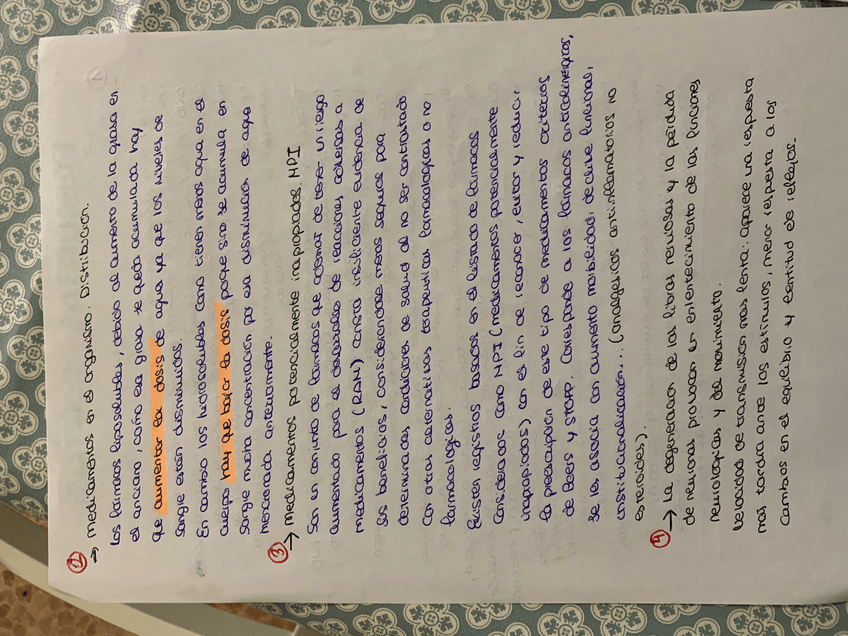 ② → Medicamentos en el organismo. Distribución.
Los fármacos liposolubles, debido al aumento de la grasa en
el anciano, como esa grasa se queda acumulada hay
que aumentar la dosis de agua ya que los niveles de
sangre están disminuidos.
En cambio los hidrosolubles como tienen menos agua en el
cuerpo hay que bajar la dosis porque sino se acumula en
sangre mucha concentración por esa disminución de agua
mencionada anteriormente.
③ → Medicamentos potencialmente inapropiados. MPI
Son un conjunto de fármacos que además de tener un riesgo
aumentado para el desarrollo de reacciones adversas a
medicamentos (RAM) consta insuficiente evidencia de
sus beneficios, considerándose menos seguros para
determinadas condiciones de salud al no ser contrastado
con otras alternativas terapeuticas farmacológicas o no
farmacológicas.
Existen registros basados en el listado de fármacos
considerados como MPI (medicamentos potencialmente
inapropiados) con el fin de reconocer, evitar y reducir
la prescripción de este tipo de medicamentos: criterios
de Beers y STOPP. Corresponde a los fármacos anticolinérgicos,
se les associa con aumento morbilidad, declive funcional,
institucionalización... (analgésicos antiinflamatorios no
esteroides).
④ → La degeneración de las fibras nerviosas y la pérdida
de neuronas provocan un enlentecimiento de las funciones
neurologicas y del movimiento.
Velocidades de transmisión más lenta: aparece una respuesta
más tardía ante los estímulos, menor respuesta a los
cambios en el equilibrio y lentitud de reflejos.